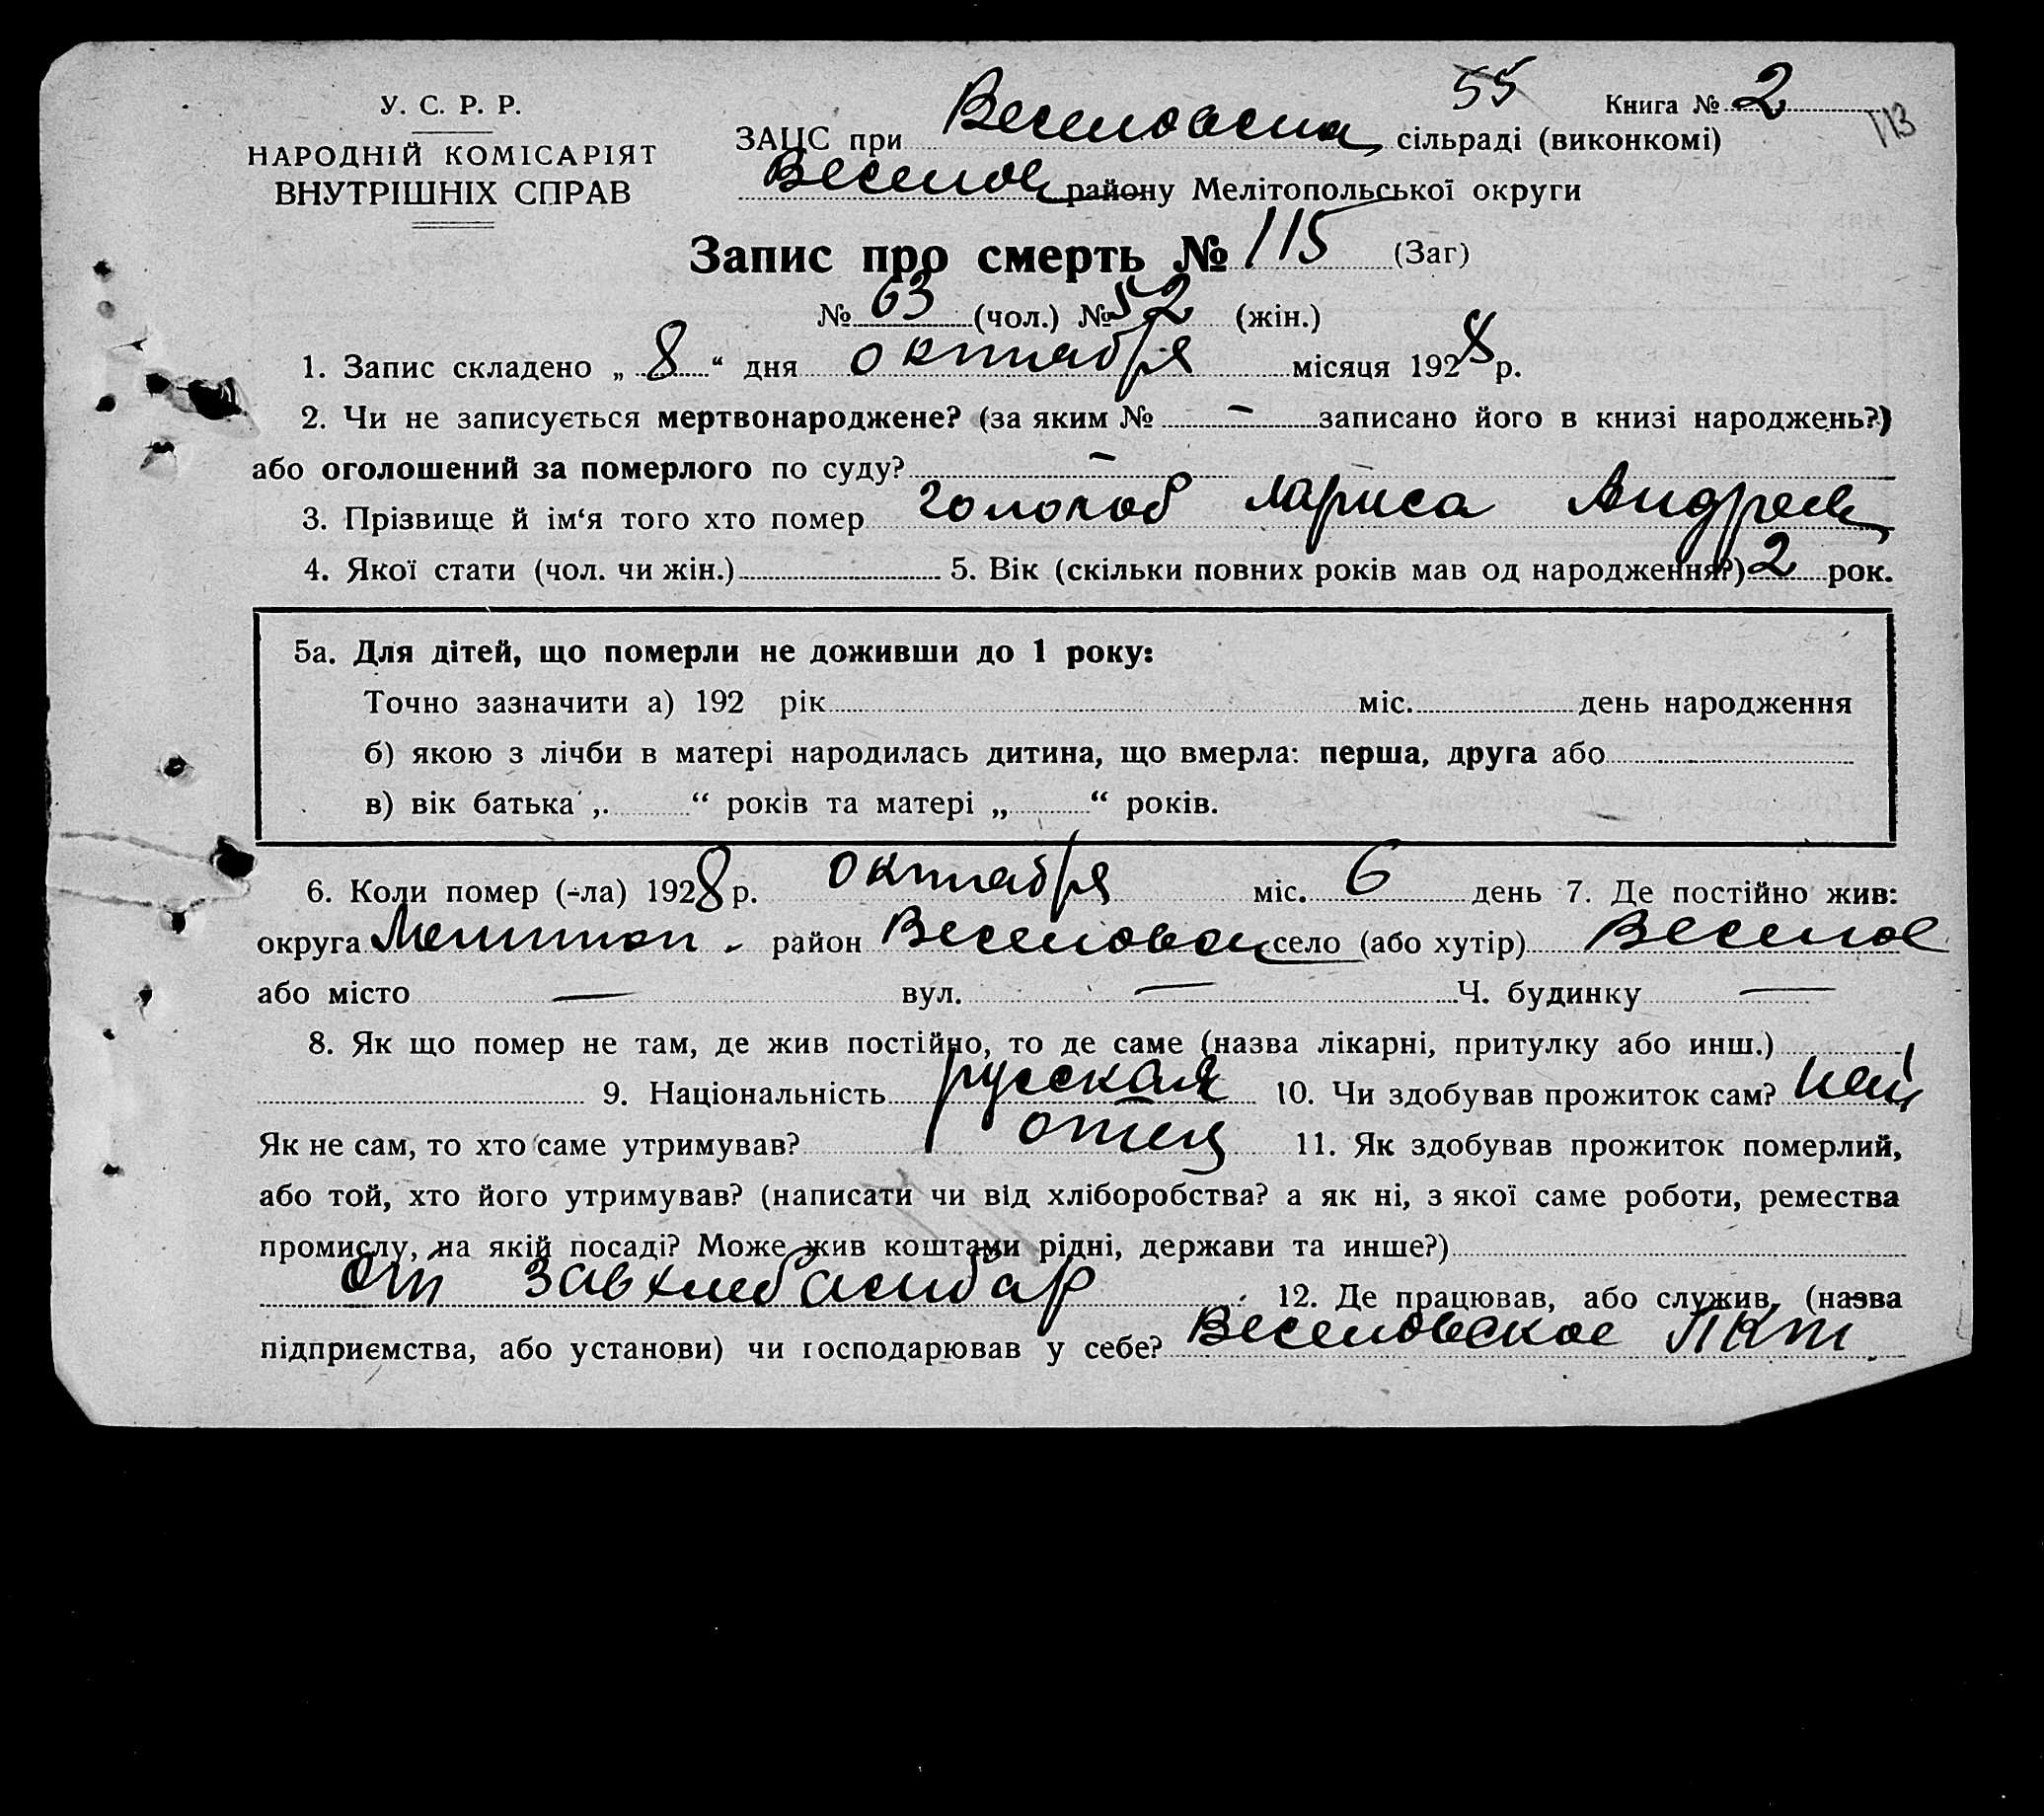 55 Книга № 2
113
У. С. Р. Р.
НАРОДНІЙ КОМІСАРІЯТ
ВНУТРІШНІХ СПРАВ
ЗАЦС при сільраді (виконкомі)
Веселов району Мелітопольської округи
Запис про смерть № 115 (Заг)
№ 63 (чол.) № 52 (жін.)
1. Запис складено „ 8 “ дня октября місяця 1928 р.
2. Чи не записується мертвонароджене? (за яким № – записано його в книзі народжень?)
або оголошений за померлого по суду? –
3. Прізвище й ім‘я того хто помер Голопоб Лариса Андреев
4. Якої стати (чол. чи жін.) 5. Вік (скільки повних років мав од народження?) 2 рок.
5а. Для дітей, що померли не доживши до 1 року:
Точно зазначити а) 192 рік міс. день народження
б) якою з лічби в матері народилась дитина, що вмерла: перша, друга або
в) вік батька „ “ років та матері „ “ років.
6. Коли помер (-ла) 1928 р. октября міс. 6 день 7. Де постійно жив:
округа Мелитоп. район Веселовск село (або хутір) Веселое
або місто — вул. — Ч. будинку —
8. Як що помер не там, де жив постійно, то де саме (назва лікарні, притулку або инш.)
9. Національність русская 10. Чи здобував прожиток сам?
Як не сам, то хто саме утримував? отец 11. Як здобував прожиток померлий,
або той, хто його утримував? (написати чи від хліборобства? а як ні, з якої саме роботи, ремества
промислу, на якій посаді? Може жив коштами рідні, держави та инше?)
от завхлебамбар 12. Де працював, або служив, (назва
підприємства, або установи) чи господарював у себе? Веселовское ПКт